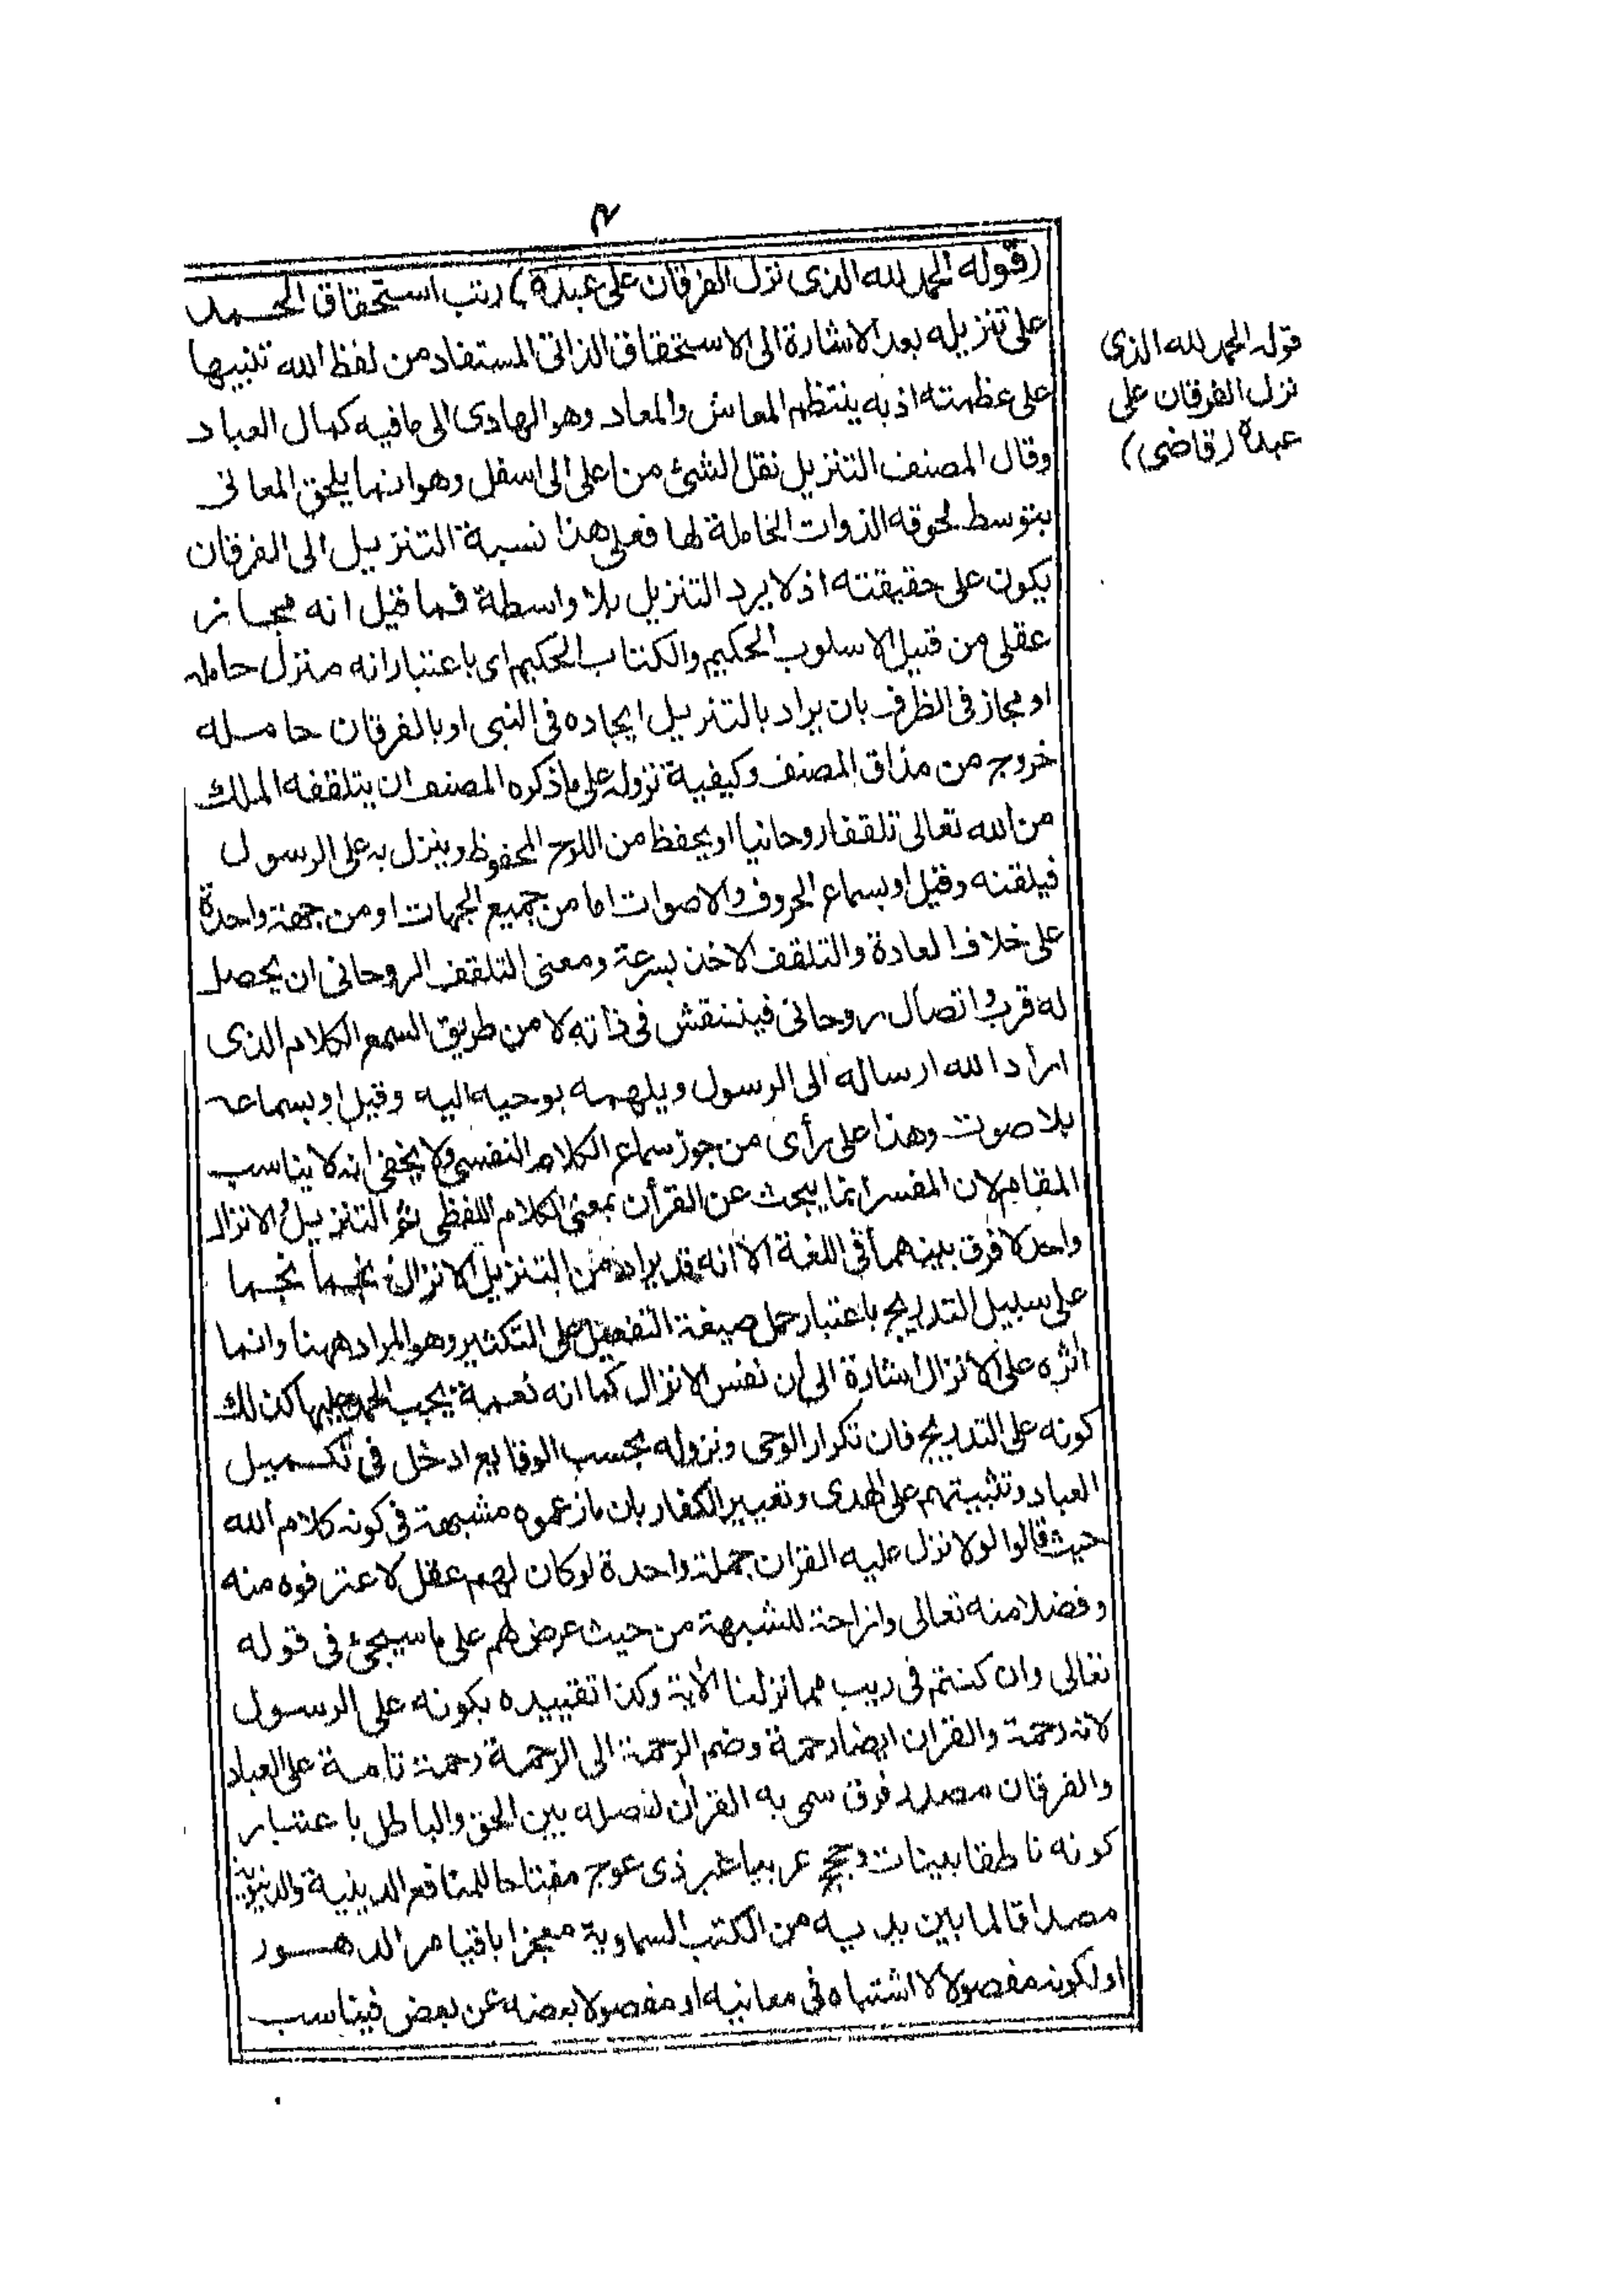 ٢
(قوله الحمد لله الذى نزل الفرقان على عبده) رتب استحقاق الحمد
على تنزيله بعد الاشارة الى الاستحقاق الذاتى المستفاد من لفظ الله تنبيها
على عظمته اذ به ينتظم المعاش والمعاد وهو الهادى الى ما فيه كمال العباد
وقال المصنف التنزيل نقل الشئ من اعلى الى اسفل وهو انما يلحق المعانى
بتوسط لحوقه الذوات الحاملة لها فعلى هذا نسبة التنزيل الى الفرقان
يكون على حقيقته اذ لا يرد التنزيل بلا واسطة فما قيل انه مجاز
عقلى من قبيل الاسلوب الحكيم والكتاب الحكيم اى باعتبار انه منزل حامله
او مجاز فى الظرف بان يراد بالتنزيل ايجاده فى النبى او بالفرقان حامله
خروج من مذاق المصنف وكيفية نزوله على ما ذكره المصنف ان يتلقفه الملك
من الله تعالى تلقفا روحانيا او يحفظ من اللوح المحفوظ وينزل به على الرسول
فيلقنه وقيل او بسماع الحروف والاصوات اما من جميع الجهات او من جهة واحدة
على خلاف العادة والتلقف الاخذ بسرعة ومعنى التلقف الروحانى ان يحصل
له قرب واتصال روحانى فينتقش فى ذاته لا من طريق السمع الكلام الذى
اراد الله ارساله الى الرسول ويلهمه بوحيه اليه وقيل او بسماعه
بلا صوت وهذا على رأى من جوز سماع الكلام النفسى ولا يخفى انه لا يناسب
المقام لان المفسر انما يبحث عن القرأن بمعنى الكلام اللفظى ثم التنزيل والانزال
واحد لا فرق بينهما فى اللغة الا انه قد يراد من التنزيل الانزال نجما نجما
على سبيل التدريج باعتبار حمل صيغة التفعيل على التكثير وهو المراد ههنا وانما
اثره على الانزال اشارة الى ان نفس الانزال كما انه نعمة يجب الحمد عليها كذلك
كونه على التدريج فان تكرار الوحى ونزوله بحسب الوقايع ادخل فى تكميل
العباد وتثبيتهم على الهدى وتعيير الكفار بان ما زعموه مشبهة فى كونه كلام الله
حيث قالوا لولا نزل عليه القران جملة واحدة لو كان لهم عقل لاعترفوه منه
وفضلا منه تعالى وازاحة للشبهة من حيث عرض لهم على ما سيجئ فى قوله
تعالى وان كنتم فى ريب مما نزلنا الأية وكذا تقييده بكونه على الرسول
لانه رحمة والقران ايضا رحمة وضم الرحمة الى الرحمة رحمة تامة على العباد
والفرقان مصدر فرق سمى به القرأن لفصله بين الحق والباطل باعتبار
كونه ناطقا ببينات وحجج عربيا غير ذى عوج مفتاحا للمنافع الدينية والدنيوية
مصداقا لما بين يديه من الكتب السماوية معجزا باقيا مر الدهور
او لكونه مفصولا لا اشتباه فى معانيه او مفصولا بعضه عن بعض فيناسب
قوله الحمد لله الذى
نزل الفرقان على
عبده (قاضى)